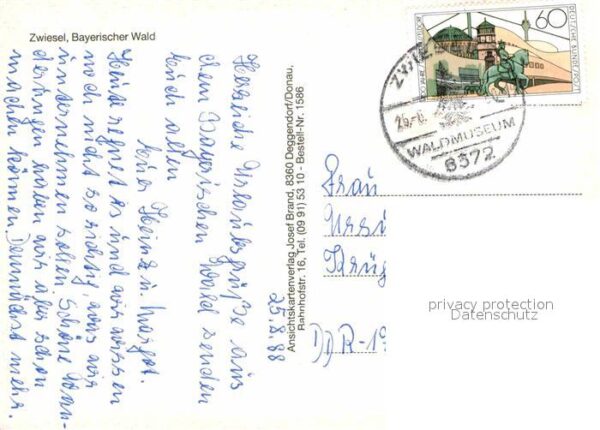 Zwiesel, Bayerischer Wald
Herzliche Urlaubsgrüße aus
dem Bayrischen Wald senden
Euch allen
Eure Heinz u. Margot.
Heut regnet es und wir wissen
noch nicht so richtig, was wir
unternehmen sollen. Schöne Wan-
derungen haben wir aber schon
machen können. Demnächst mehr.
25.8.88
Ansichtskartenverlag Josef Brand, 8360 Deggendorf/Donau,
Bahnhofstr. 16, Tel. (09 91) 53 10 - Bestell-Nr. 1586
60
DEUTSCHE BUNDESPOST
WALDMUSEUM
8372
Frau
Krüg
DDR-19
privacy protection
Datenschutz